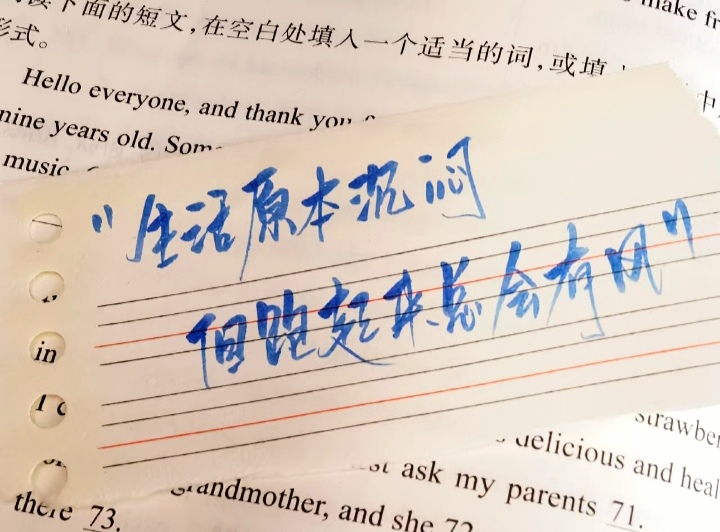 下面的短文,在空白处填入一个适当的词,或填
形式。
Hello everyone, and thank you
nine years old.
music
"生活原本沉闷
但跑起来总会有风"
in
I
delicious and
ask my parents 71.
grandmother, and she 72
there 73.